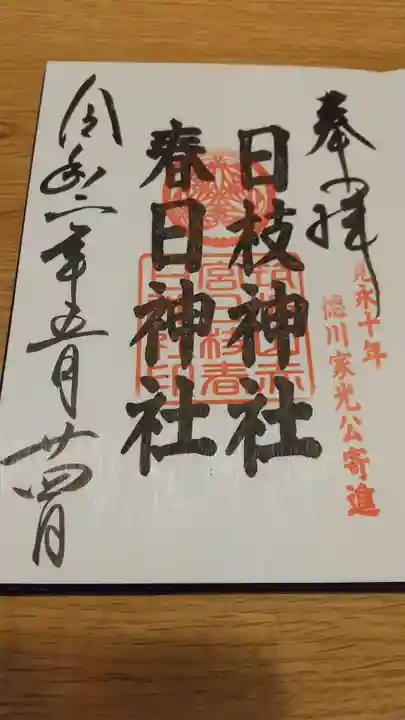 奉拝
寛永十年
徳川家光公寄進
日枝神社
春日神社
令和二年五月廿四日